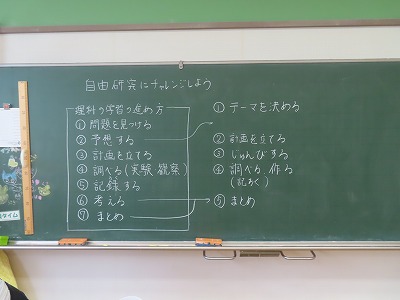 自由研究にチャレンジしよう
理科の学習の進め方
① 問題を見つける
② 予想する
③ 計画を立てる
④ 調べる(実験 観察)
⑤ 記録する
⑥ 考える
⑦ まとめ
① テーマを決める
② 計画を立てる
③ じゅんびする
④ 調べる 作る
(記ろく)
⑤ まとめ
タイム